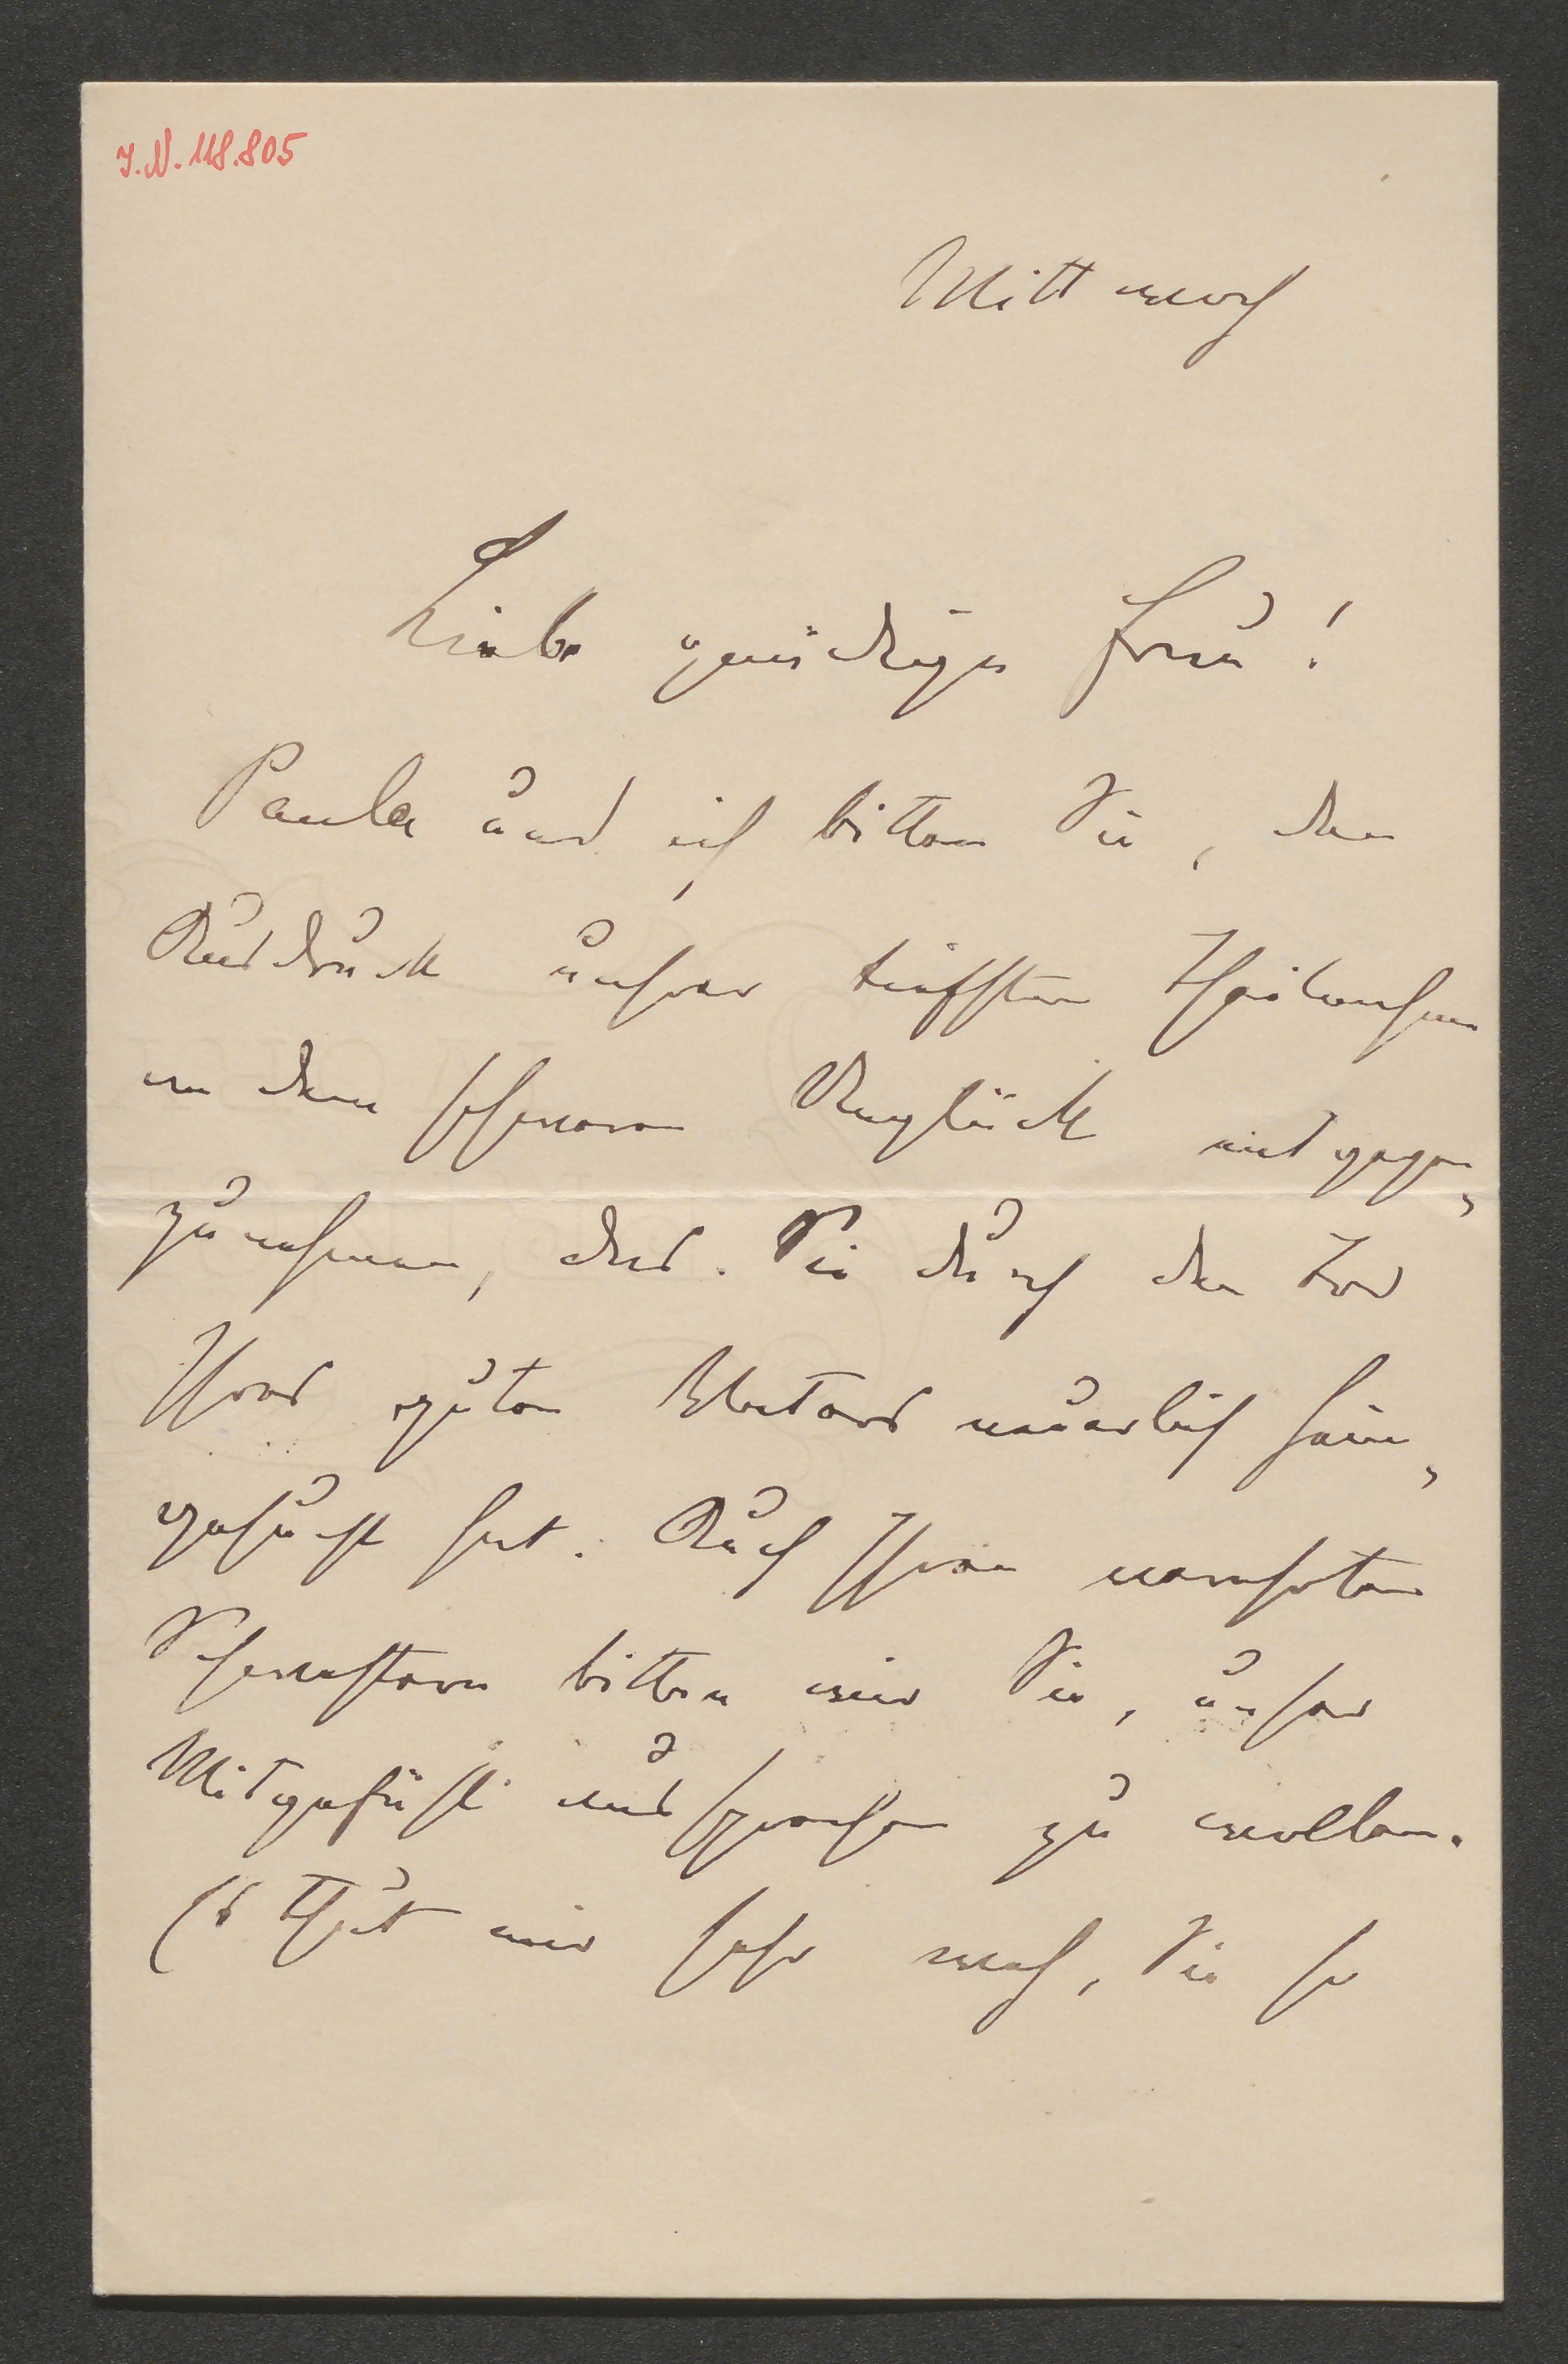 J.N. 118.805
Mittwoch
Liebe gnädige Frau!
Paula und ich bitten Sie, den
Ausdruck unserer tiefsten Theilnahme
an dem schweren Unglück entgegen-
zunehmen, das Sie durch den Tod
Ihres guten Vaters neuerlich heim-
gesucht hat. Auch Ihren verehrten
Schwestern bitten wir Sie, unser
Mitgefühl aussprechen zu wollen.
Es thut mir sehr weh, Sie so